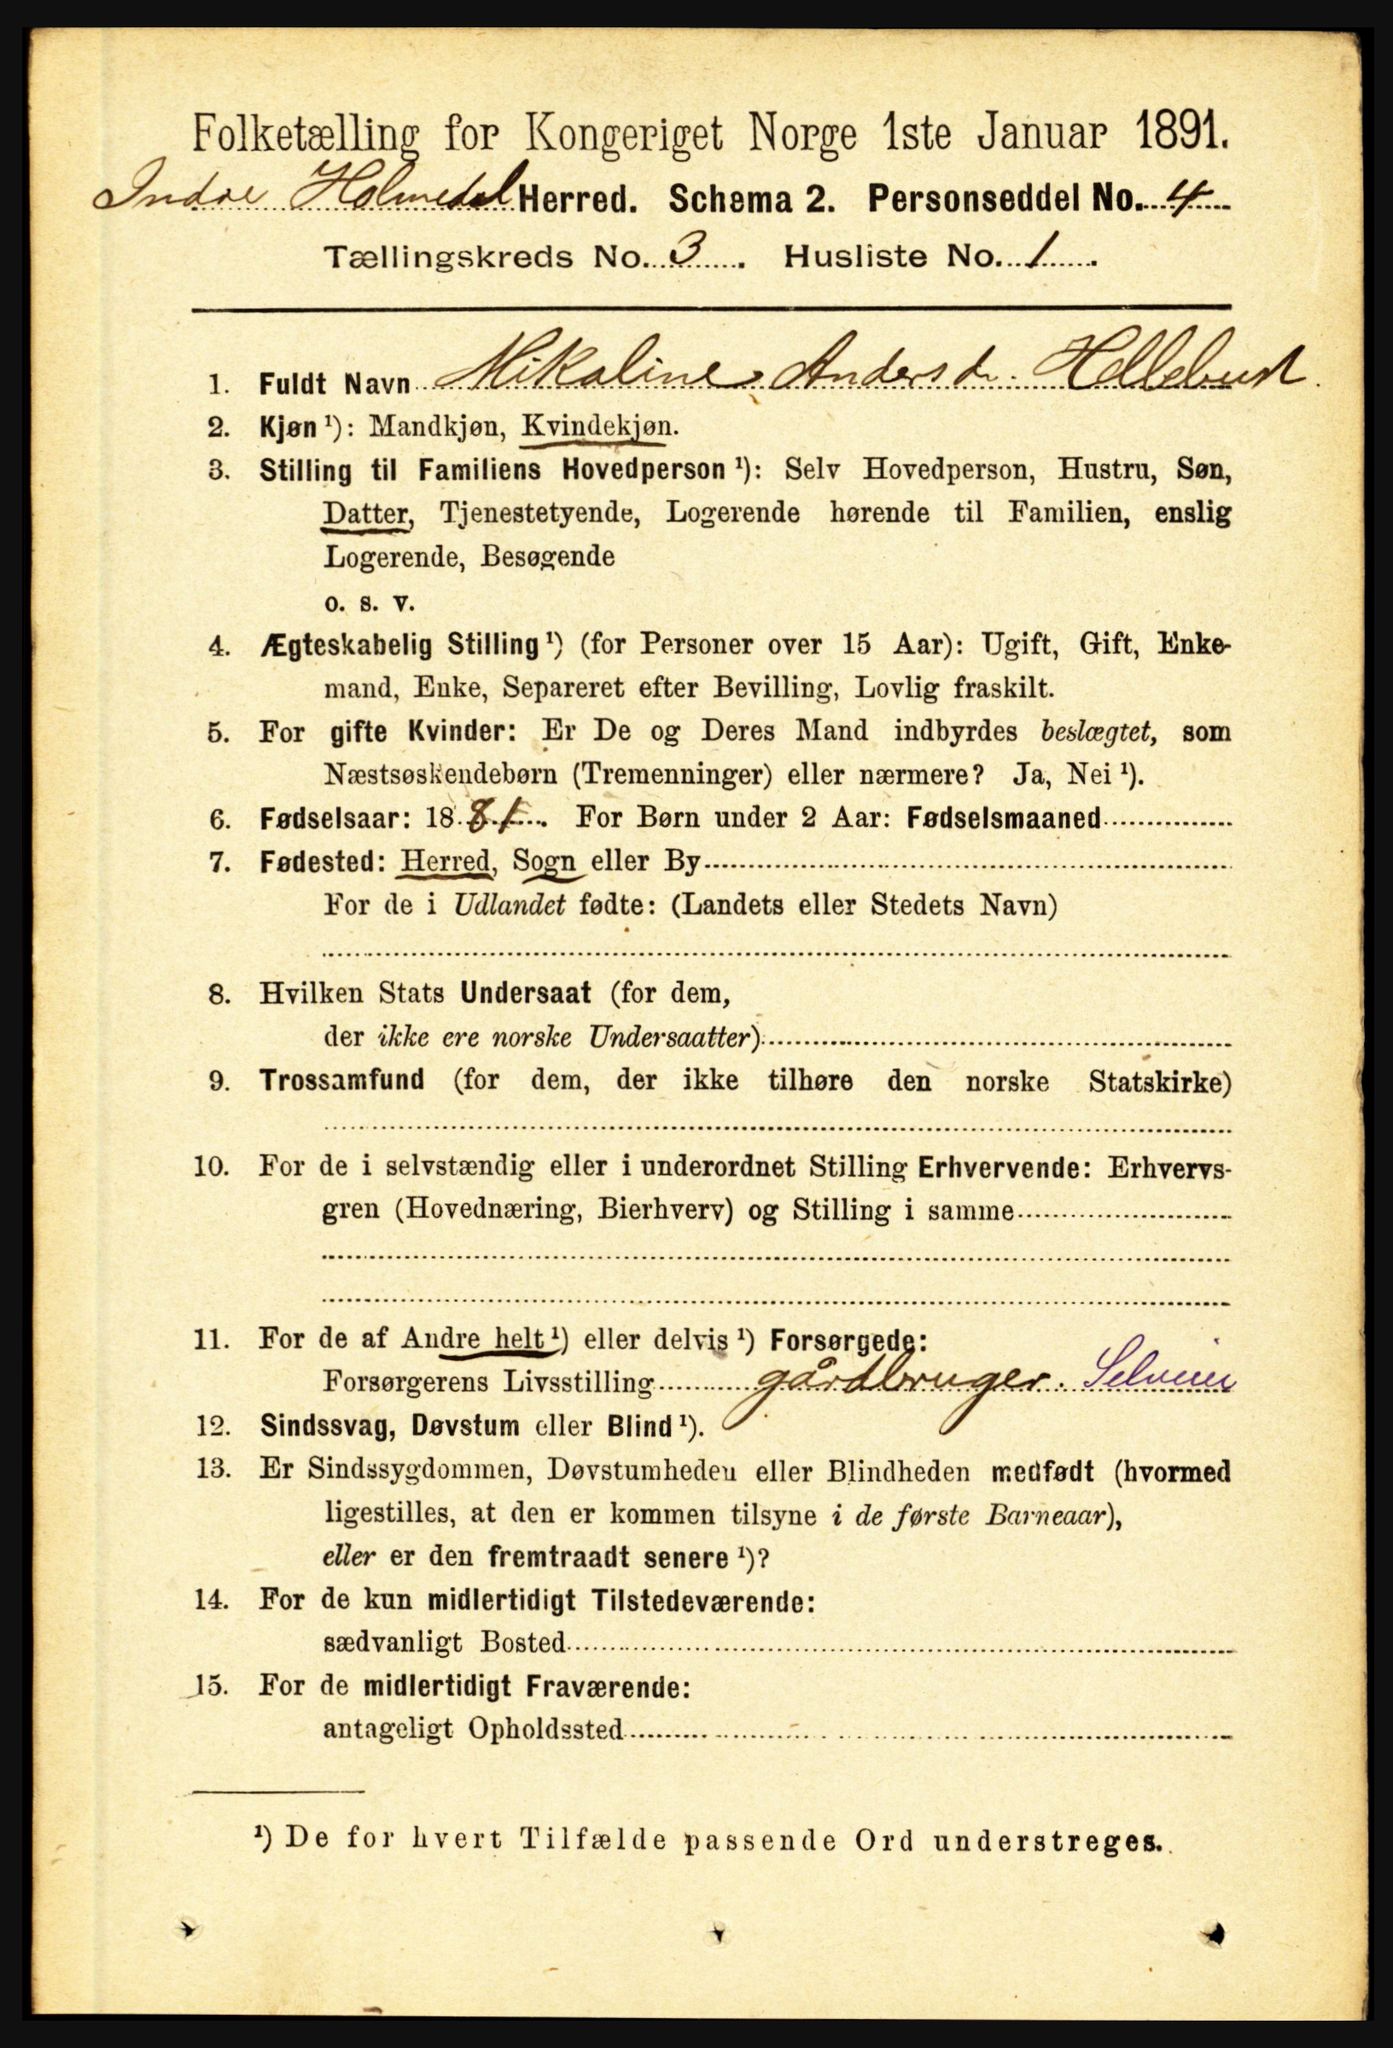 Folketælling for Kongeriget Norge 1ste Januar 1891.
Indre Holmedal Herred. Schema 2. Personseddel No. 4
Tællingskreds No. 3. Husliste No. 1.
1. Fuldt Navn Mikaline Andersd. Hellebust.
2. Kjøn ¹): Mandkjøn, Kvindekjøn.
3. Stilling til Familiens Hovedperson ¹): Selv Hovedperson, Hustru, Søn,
Datter, Tjenestetyende, Logerende hørende til Familien, enslig
Logerende, Besøgende
o. s. v.
4. Ægteskabelig Stilling ¹) (for Personer over 15 Aar): Ugift, Gift, Enke-
mand, Enke, Separeret efter Bevilling, Lovlig fraskilt.
5. For gifte Kvinder: Er De og Deres Mand indbyrdes beslægtet, som
Næstsøskendebørn (Tremenninger) eller nærmere? Ja, Nei ¹).
6. Fødselsaar: 1881. For Børn under 2 Aar: Fødselsmaaned
7. Fødested: Herred, Sogn eller By
For de i Udlandet fødte: (Landets eller Stedets Navn)
8. Hvilken Stats Undersaat (for dem,
der ikke ere norske Undersaatter)
9. Trossamfund (for dem, der ikke tilhøre den norske Statskirke)
10. For de i selvstændig eller i underordnet Stilling Erhvervende: Erhvervs-
gren (Hovednæring, Bierhverv) og Stilling i samme
11. For de af Andre helt ¹) eller delvis ¹) Forsørgede:
Forsørgerens Livsstilling gårdbruger. Selveier
12. Sindssvag, Døvstum eller Blind ¹).
13. Er Sindssygdommen, Døvstumheden eller Blindheden medfødt (hvormed
ligestilles, at den er kommen tilsyne i de første Barneaar),
eller er den fremtraadt senere ¹)?
14. For de kun midlertidigt Tilstedeværende:
sædvanligt Bosted
15. For de midlertidigt Fraværende:
antageligt Opholdssted
¹) De for hvert Tilfælde passende Ord understreges.